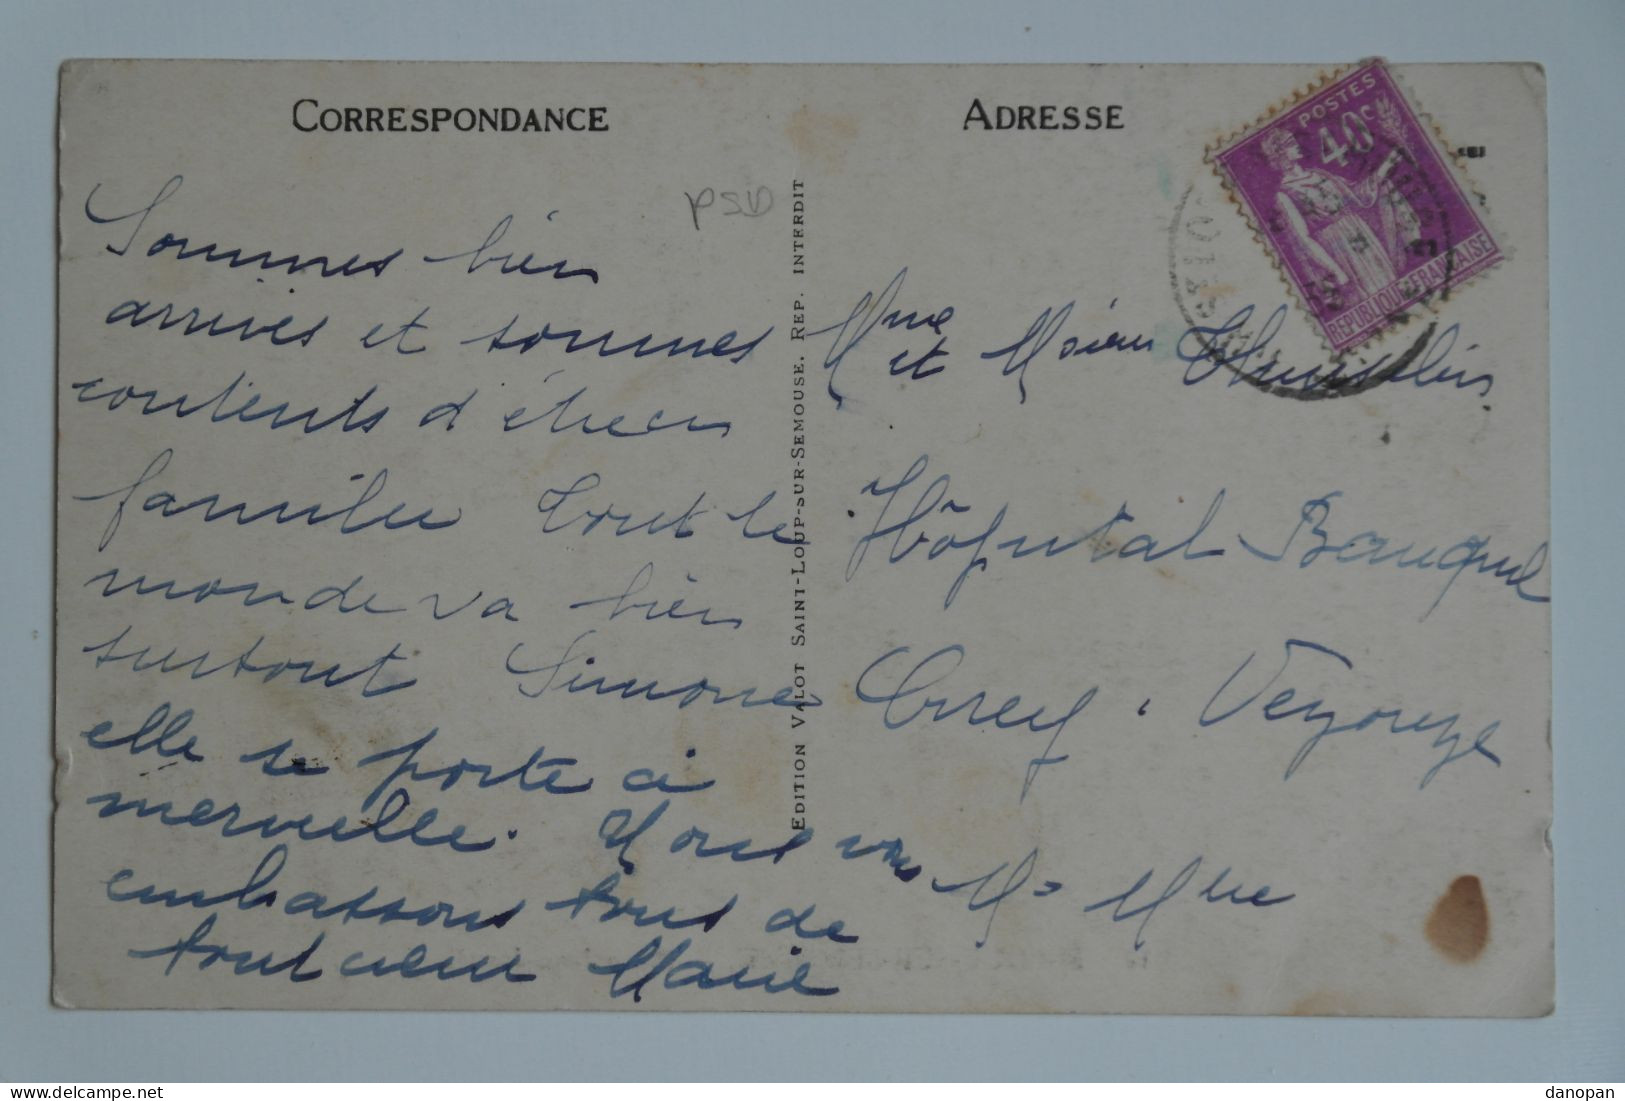 CORRESPONDANCE
Sommes bien
arrivés et sommes
contents d'être en
famille Tout le
monde va bien
surtout Simone
elle se porte à
merveille. Nous vous
embassons tous de
tout cœur Marie
PSD
EDITION VALOT SAINT-LOUP-SUR-SEMOUSE. REP. INTERDIT
ADRESSE
POSTES
40c
REPUBLIQUE FRANÇAISE
Mme
et Msieur
Hôpital
Crecy
Mr Mme
danopan